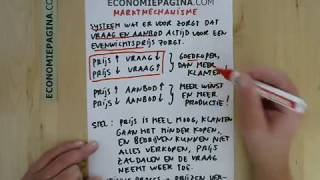 ECONOMIEPAGINA.COM
MARKTMECHANISME
SYSTEEM WAT ER VOOR ZORGT DAT
VRAAG EN AANBOD ALTIJD VOOR EEN
EVENWICHTSPRIJS ZORGT.
PRIJS ↑ VRAAG ↓ } GOEDKOPER,
PRIJS ↓ VRAAG ↑ DAN MEER
KLANTEN!
PRIJS ↑ AANBOD ↑ } MEER WINST
PRIJS ↓ AANBOD ↓ EN MEER
PRODUCTIE!
STEL: PRIJS IS HEEL HOOG, KLANTEN
GAAN HET MINDER KOPEN,
EN BEDRIJVEN KUNNEN NIET
ALLES VERKOPEN, PRIJS
ZAL DALEN EN DE VRAAG
NEEMT WEER TOE.
PRIJZEN VER-
ECONOMIEPAGINA.COM